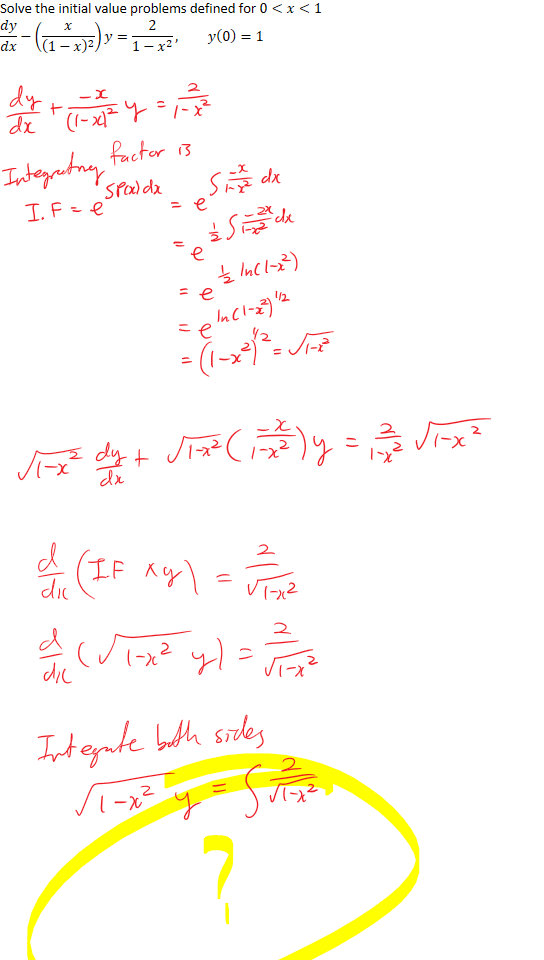 Solve the initial value problems defined for 0 < x < 1
dy/dx − (x/(1 − x)²) y = 2/(1 − x²), y(0) = 1
dy/dx + −x/(1-x)² y = 2/(1-x²)
Integrating factor is
I.F = e^∫P(x)dx = e^∫ −x/(1-x²) dx
= e^½ ∫ −2x/(1-x²) dx
= e^½ ln(1-x²)
= e^ln(1-x²)^1/2
= (1-x²)^1/2 = √(1-x²)
√(1-x²) dy/dx + √(1-x²) (−x/(1-x²)) y = 2/(1-x²) √(1-x²)
d/dx (IF × y) = 2/√(1-x²)
d/dx (√(1-x²) y) = 2/√(1-x²)
Integrate both sides
√(1-x²) y = ∫ 2/√(1-x²)
?